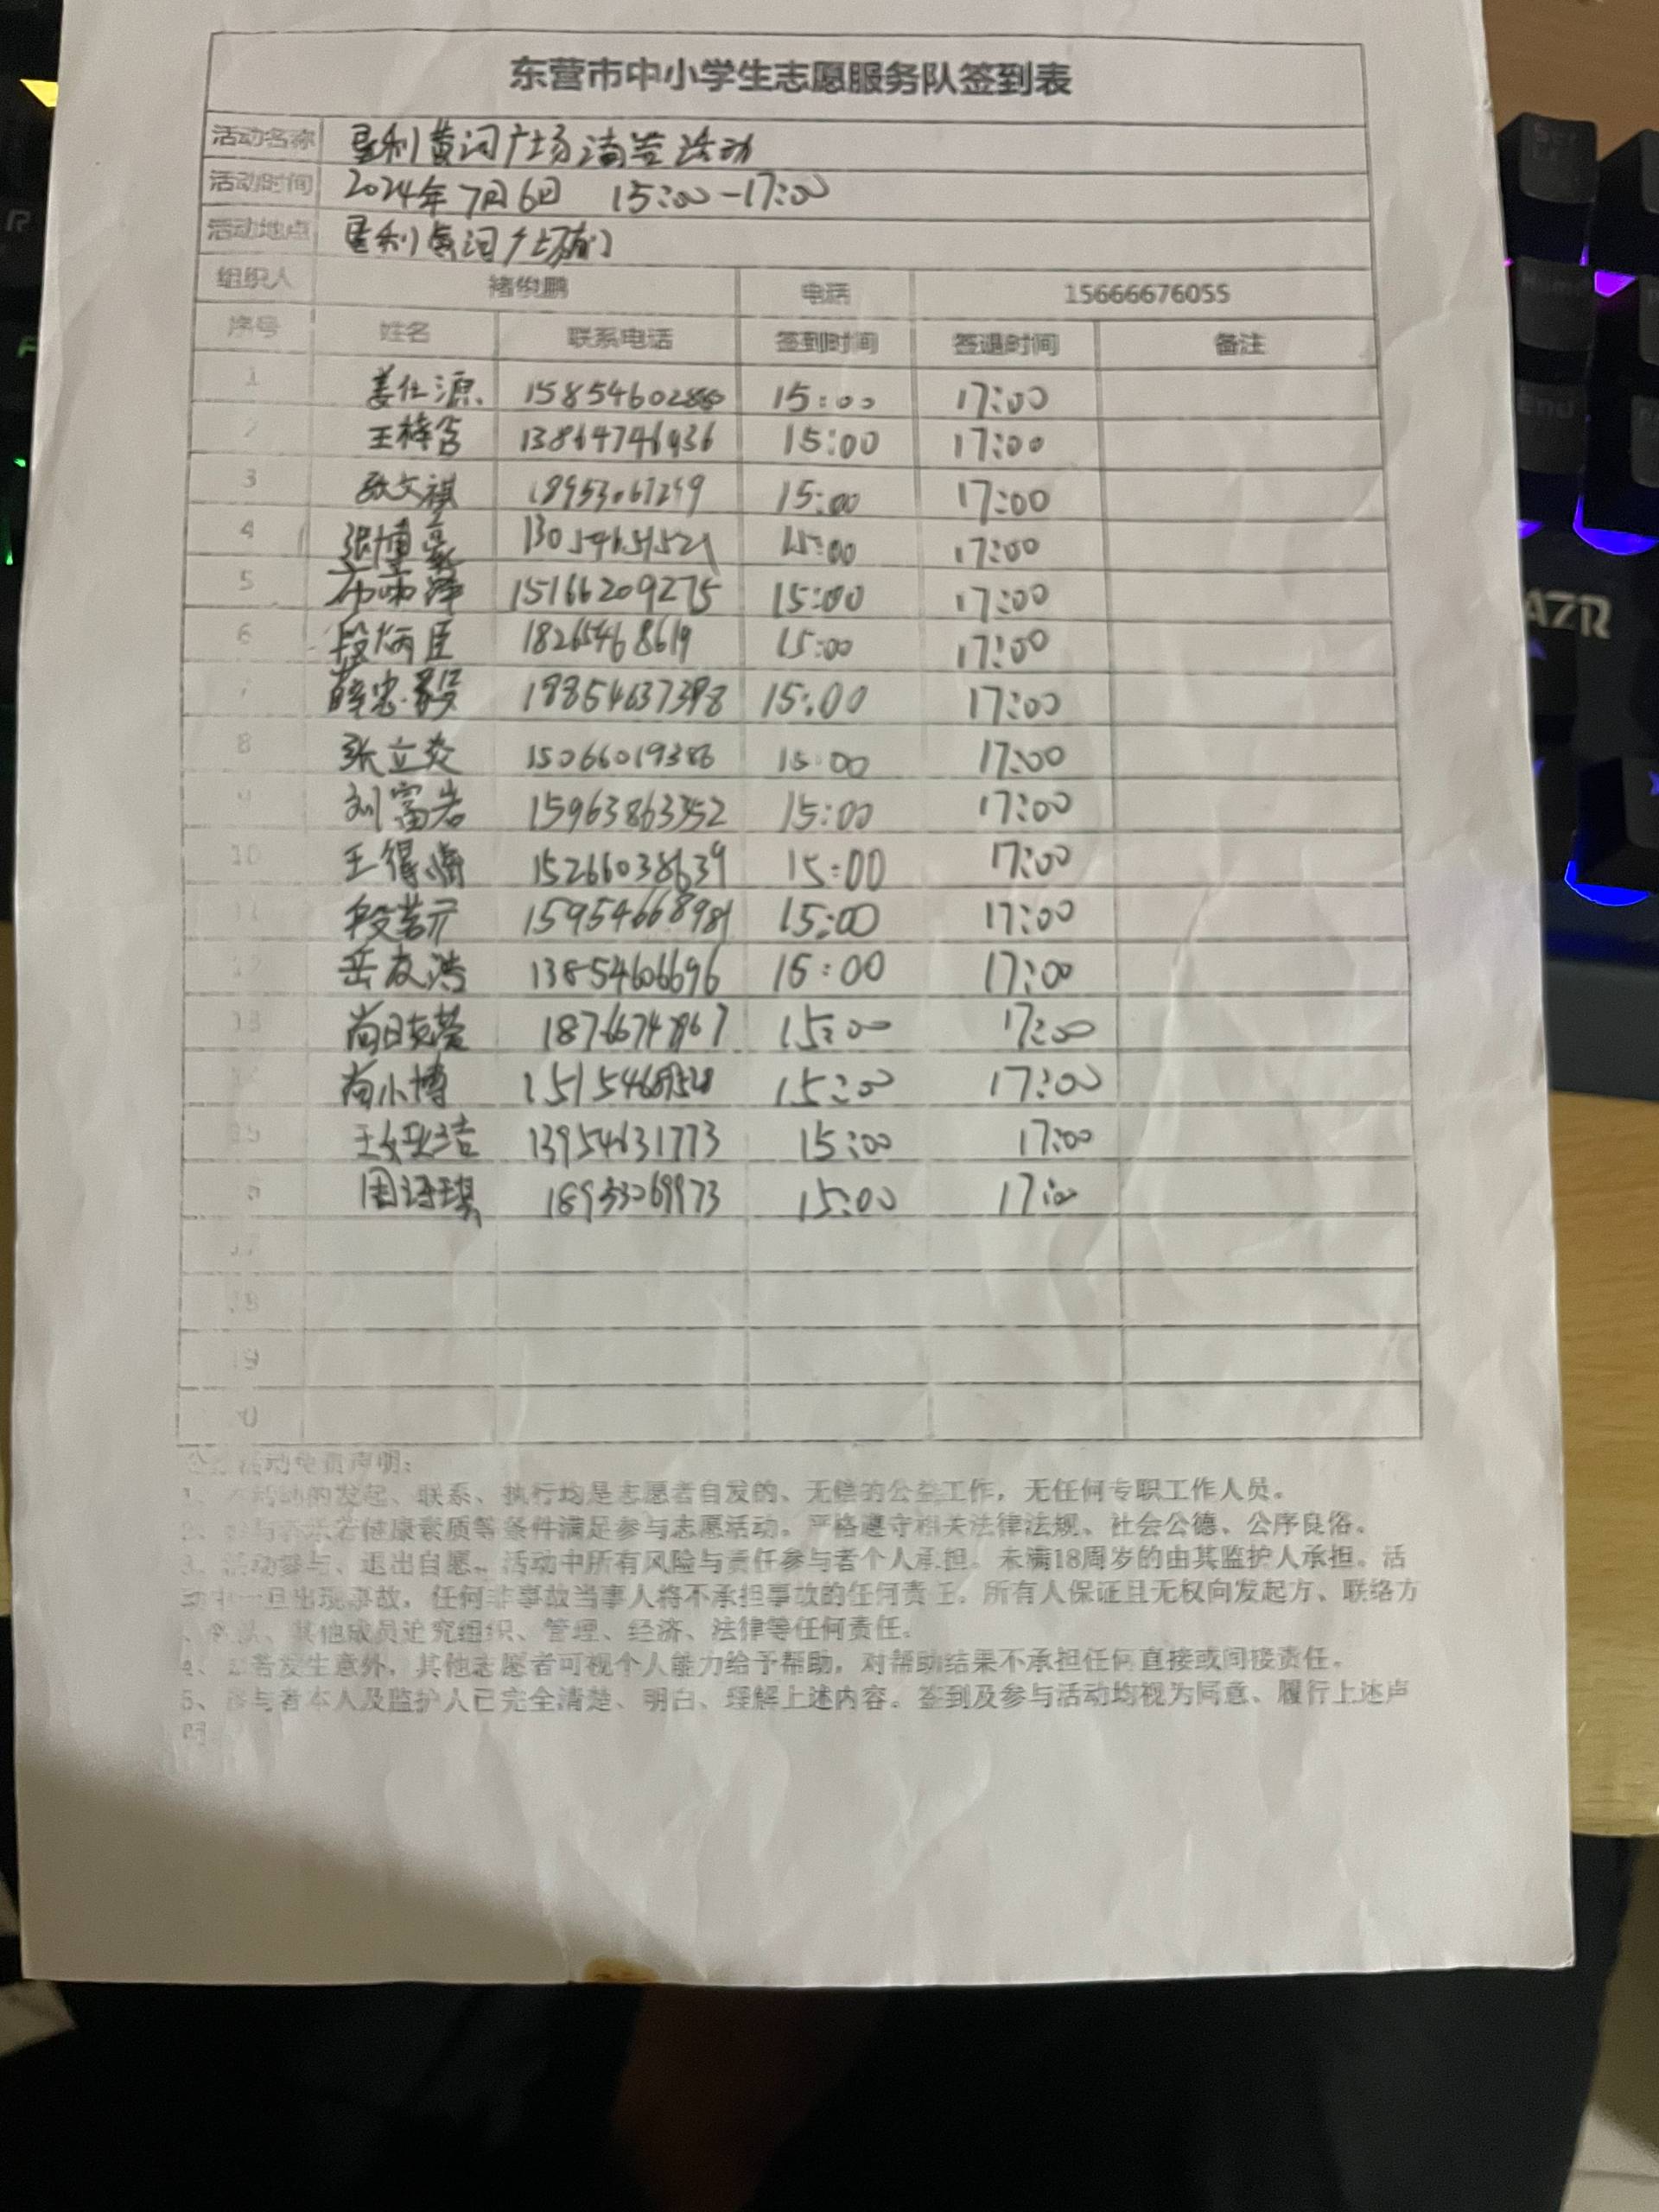 东营市中小学生志愿服务队签到表
活动名称 垦利黄河广场清洁活动
活动时间 2024年7月6日 15:00-17:00
活动地点 垦利黄河广场南门
组织人 褚俊鹏 电话 15666676055
序号 姓名 联系电话 签到时间 签退时间 备注
1 姜仕源 15:00 17:00
2 王梓含 15:00 17:00
3 文祺 15:00 17:00
4 张博 15:00 17:00
5 15166209275 15:00 17:00
6 段炳臣 18265468619 15:00 17:00
7 薛忠毅 15:00 17:00
8 张立炎 15066019386 15:00 17:00
9 刘富岩 15963863352 15:00 17:00
10 王得 15266038639 15:00 17:00
11 段 15954668981 15:00 17:00
12 岳友浩 13854606696 15:00 17:00
13 尚 15:00 17:00
14 尚小博 15:00 17:00
15 王 洁 13954631773 15:00 17:00
6 周语琪 15:00 17:00
17
18
19
活动免责声明：
1、 活动的发起、联系、执行均是志愿者自发的、无偿的公益工作，无任何专职工作人员。
参与者 健康素质等条件满足参与志愿活动。严格遵守相关法律法规、社会公德、公序良俗。
3、活动参与、退出自愿。活动中所有风险与责任参与者个人承担。未满18周岁的由其监护人承担。活
动中一旦出现事故，任何非事故当事人将不承担事故的任何责任。所有人保证且无权向发起方、联络方
、其他成员追究组织、管理、经济、法律等任何责任。
4、 若发生意外，其他志愿者可视个人能力给予帮助，对帮助结果不承担任何直接或间接责任。
5、参与者本人及监护人已完全清楚、明白、理解上述内容。签到及参与活动均视为同意、履行上述声
明
AZR
End